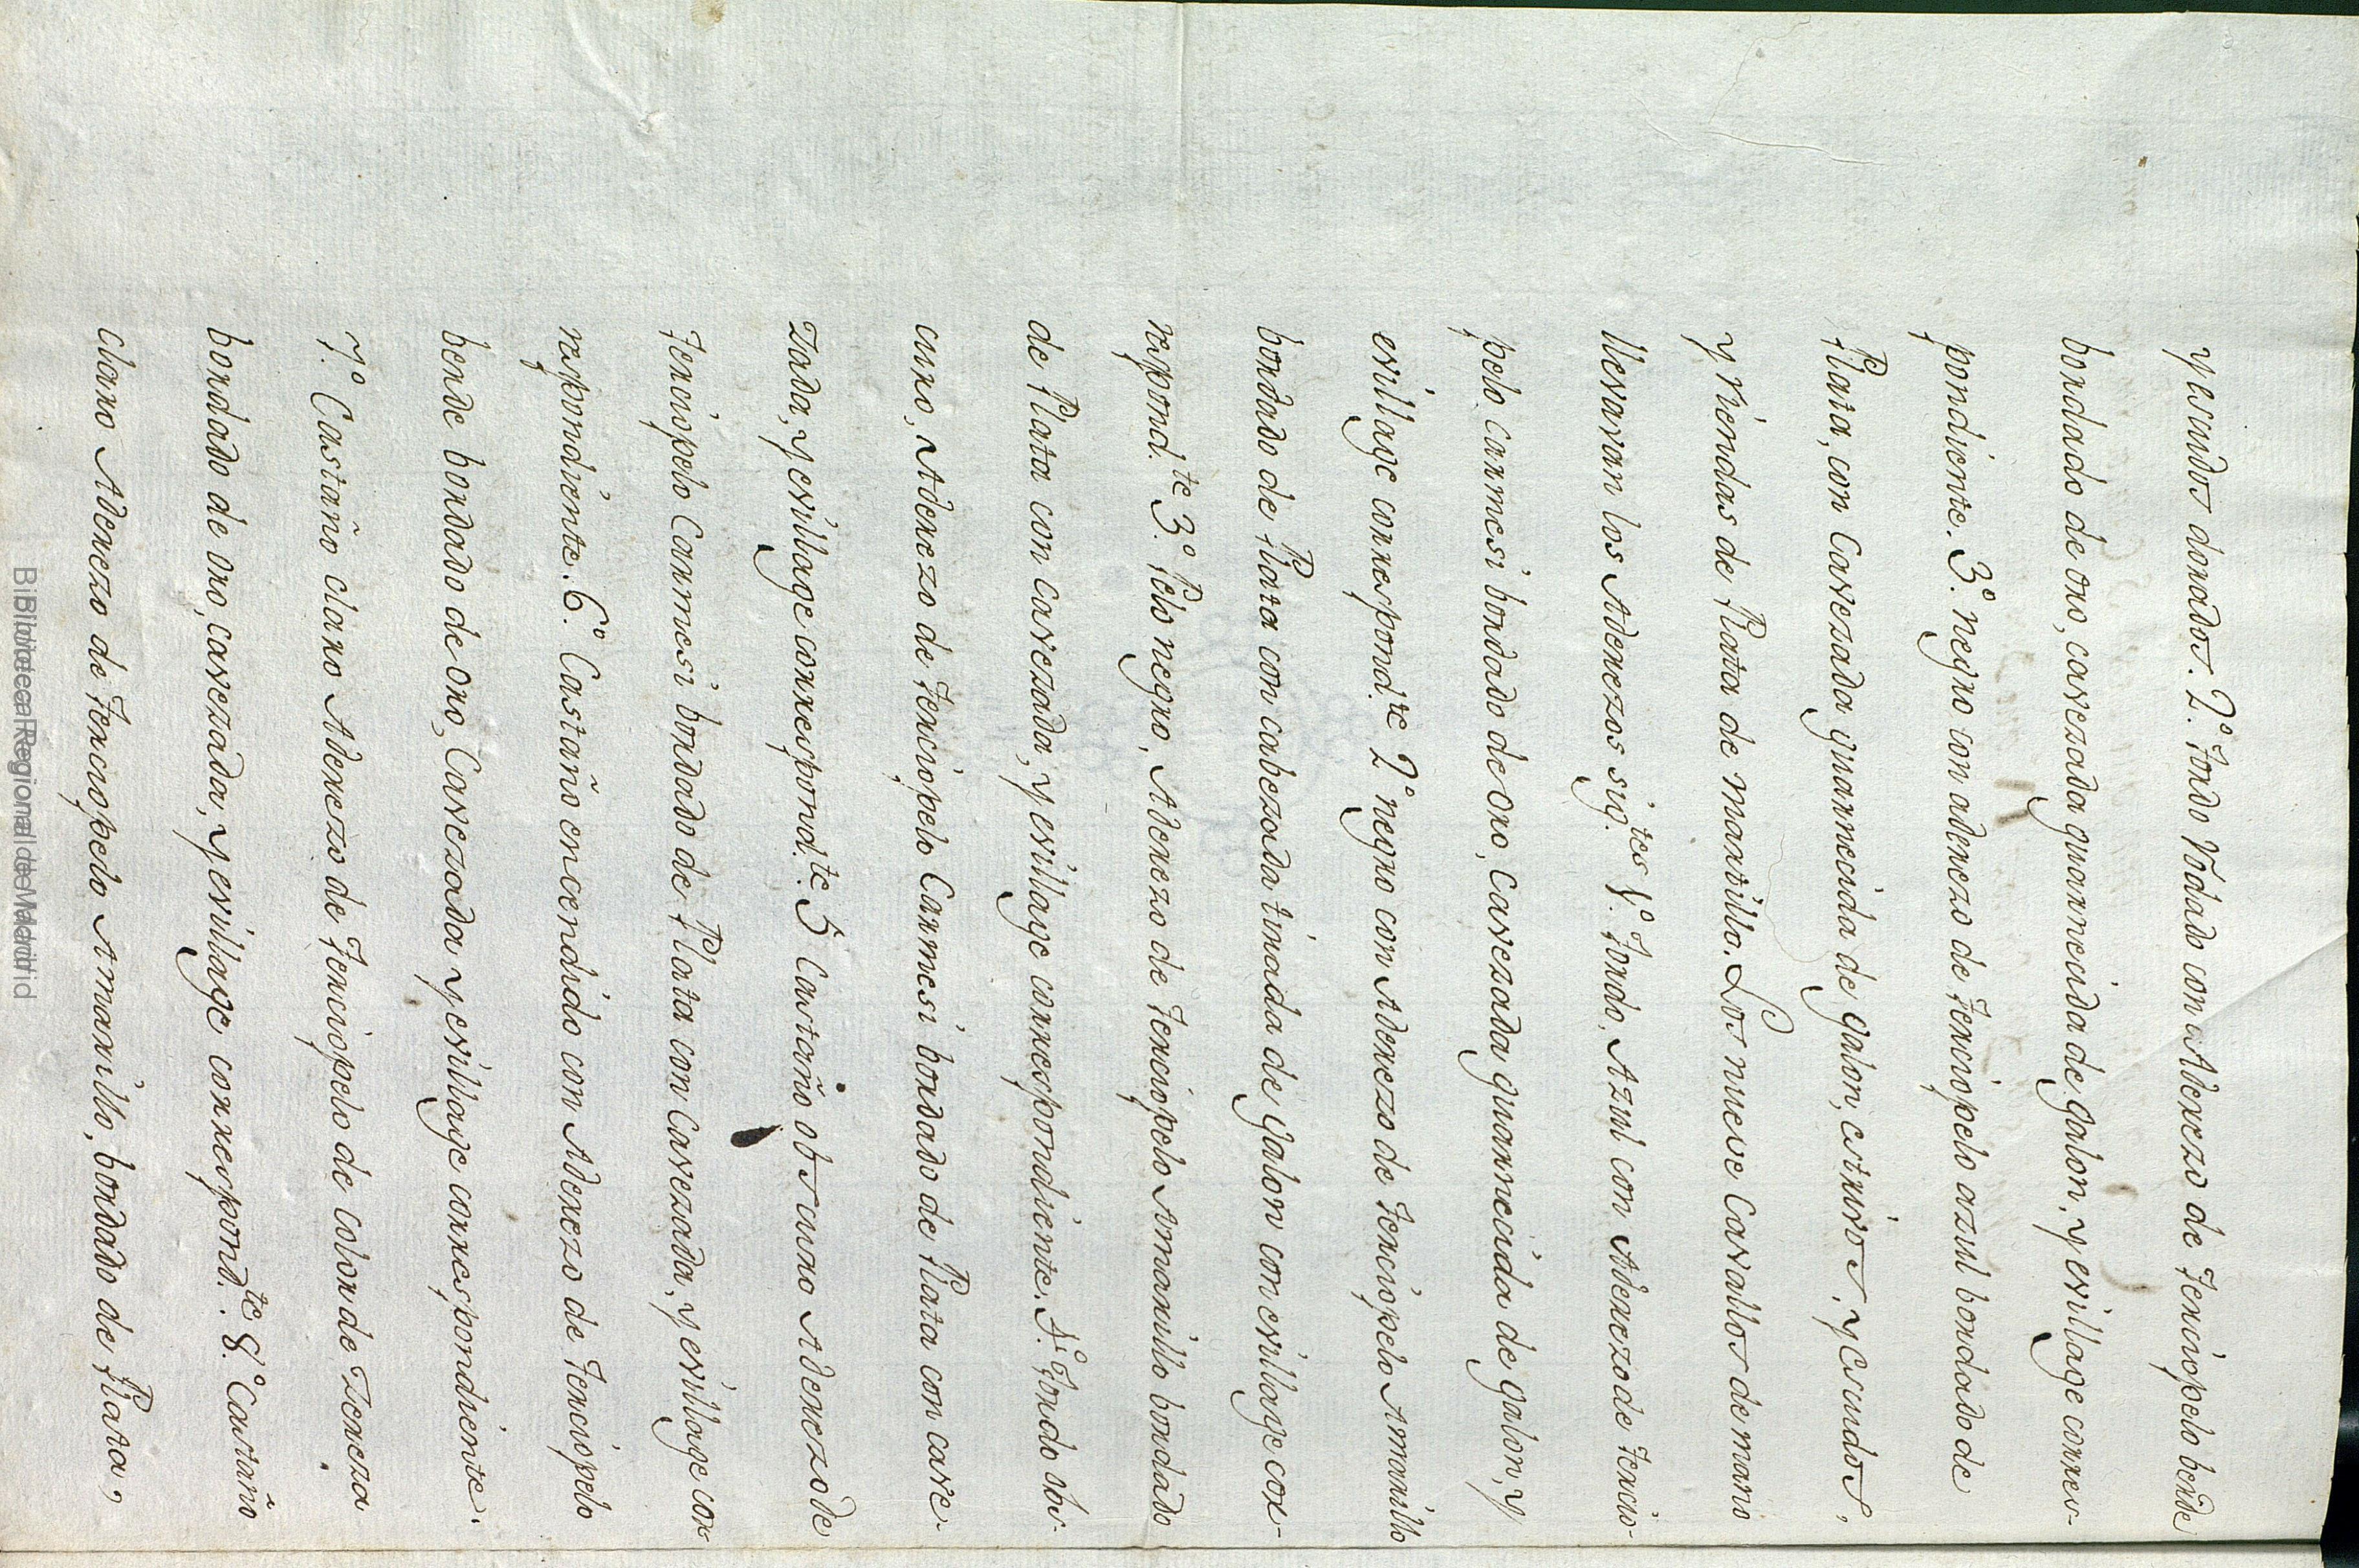 y escudos dorados. 2.º Tordo Rodado con Aderezo de Terciopelo berde
bordado de oro, cavezada guarnecida de galon, y evillage corres-
pondiente. 3.º negro con aderezo de Terciopelo azul bordado de
Plata, con Cavezada guarnecida de galon, estrivos, y escudos,
y Riendas de Plata de martillo. Los nueve Cavallos de mano
llevavan los Aderezos sig.tes 1.º Tordo, Azul con Aderezo de Tercio-
pelo carmesi bordado de oro, Cavezada guarnecida de galon, y
evillage correspond.te 2.º negro con Aderezo de Terciopelo Amarillo
bordado de Plata con cabezada tirada de galon con evillage cor-
respond.te 3.º Pelo negro, Aderezo de Terciopelo Amarillo bordado
de Plata con cavezada, y evillage correspondiente. 4.º Tordo obs-
curo, Aderezo de Terciopelo Carmesi bordado de Plata con cave-
zada, y evillage correspond.te 5 Castaño obscuro Aderezo de
Terciopelo Carmesi bordado de Plata con Cavezada, y evillage cor
respondiente. 6.º Castaño encendido con Aderezo de Terciopelo
berde bordado de oro, Cavezada y evillage correspondiente.
7.º Castaño claro Aderezo de Terciopelo de color de Zereza
bordado de oro, cavezada, y evillage correspond.te 8.º Castaño
claro Aderezo de Terciopelo Amarillo, bordado de Plata,
Biblioteca Regional de Madrid